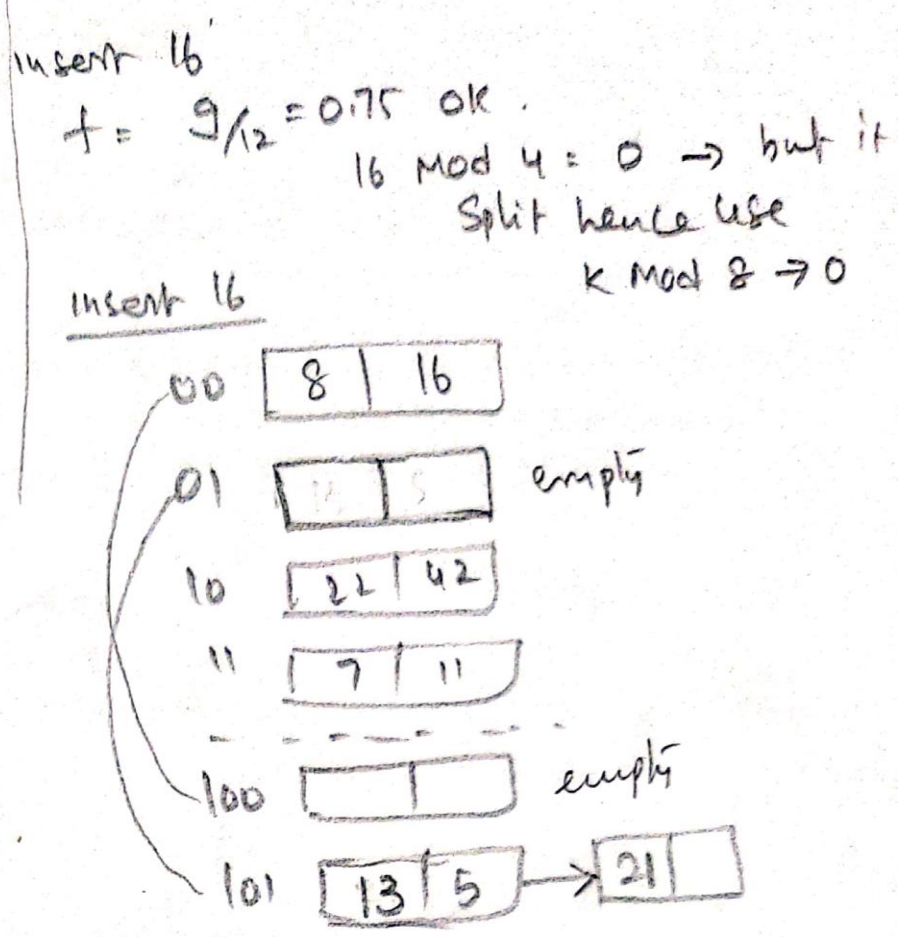 insert 16
f = 9/12 = 0.75 OK.
16 Mod 4 = 0 → but it
Split hence use
K Mod 8 → 0
insert 16
00 8 16
01 empty
10 22 42
11 7 11
100 empty
101 13 5 → 21